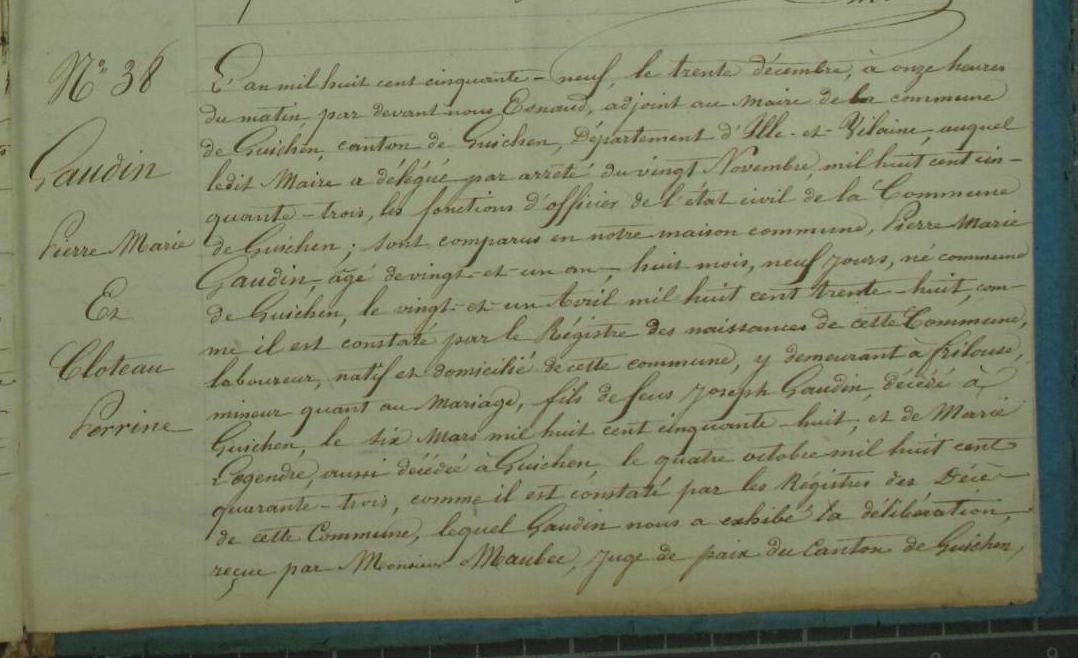 N° 38
Gaudin
Pierre Marie
Et
Cloteau
Perrine
L'an mil huit cent cinquante-neuf, le trente décembre, à onze heures
du matin par devant nous Esnaud, adjoint au Maire de la commune
de Guichen, canton de Guichen, Département d'Ille-et-Vilaine, auquel
ledit Maire a délégué par arrêté du vingt Novembre mil huit cent cin-
quante-trois, les fonctions d'officier de l'état civil de la Commune
de Guichen ; sont comparus en notre maison commune, Pierre Marie
Gaudin, âgé de vingt-et-un an, huit mois, neuf jours, né commune
de Guichen, le vingt-et-un Avril mil huit cent trente-huit, com-
me il est constaté par le Régistre des naissances de cette Commune,
laboureur, natif et domicilié de cette commune, y demeurant à
mineur quant au Mariage, fils de feus Joseph Gaudin, décédé à
Guichen, le six Mars mil huit cent cinquante-huit, et de Marie
Legendre, aussi décédée à Guichen, le quatre octobre mil huit cent
quarante-trois, comme il est constaté par les Régistres des Décè-
de cette Commune, lequel Gaudin nous a exhibé la délibération,
reçue par Monsieur Juge de paix du Canton de Guichen,